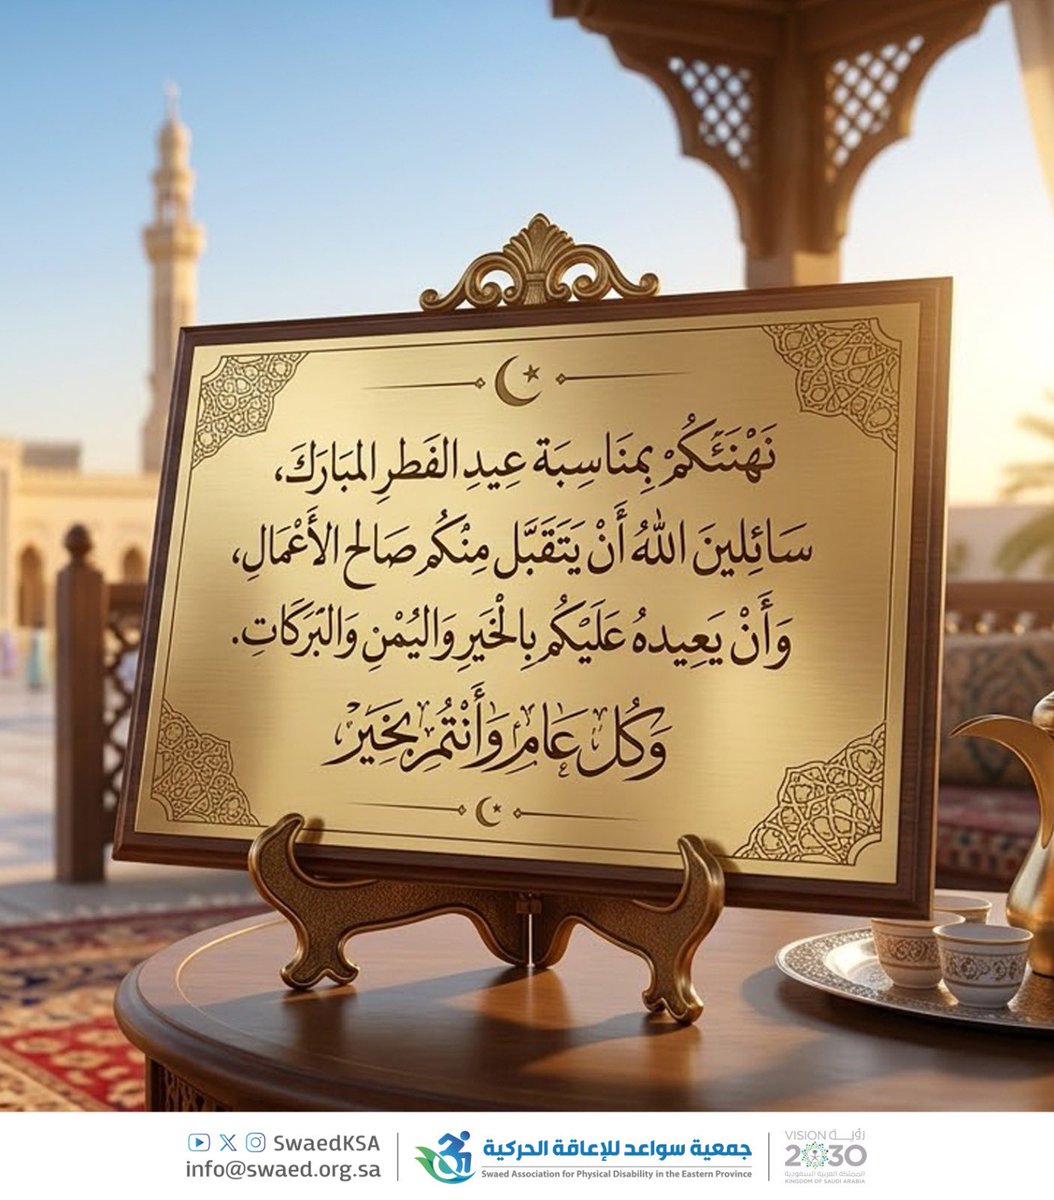 نَهْنَئَكُمْ بِمنَاسِبَة عِيدِ الفَطرِ المبَارَكَ،
سَائِلينَ اللهُ أَنْ يَتَقَبَّل مِنْكُم صَالح الأَعْمَالِ،
وَأَنْ يَعِيدهُ عَلَيْكُم بِالْخَيَرِ وَاليُمْنِ وَالبَرَكَاتِ.
وَكُل عَامِ وَأَنْتُمِ بِخَيَرْ
SwaedKSA
info@swaed.org.sa
جمعية سواعد للإعاقة الحركية
Swaed Association for Physical Disability in the Eastern Province
VISION رؤيــة
2030
المملكة العربية السعودية
KINGDOM OF SAUDI ARABIA